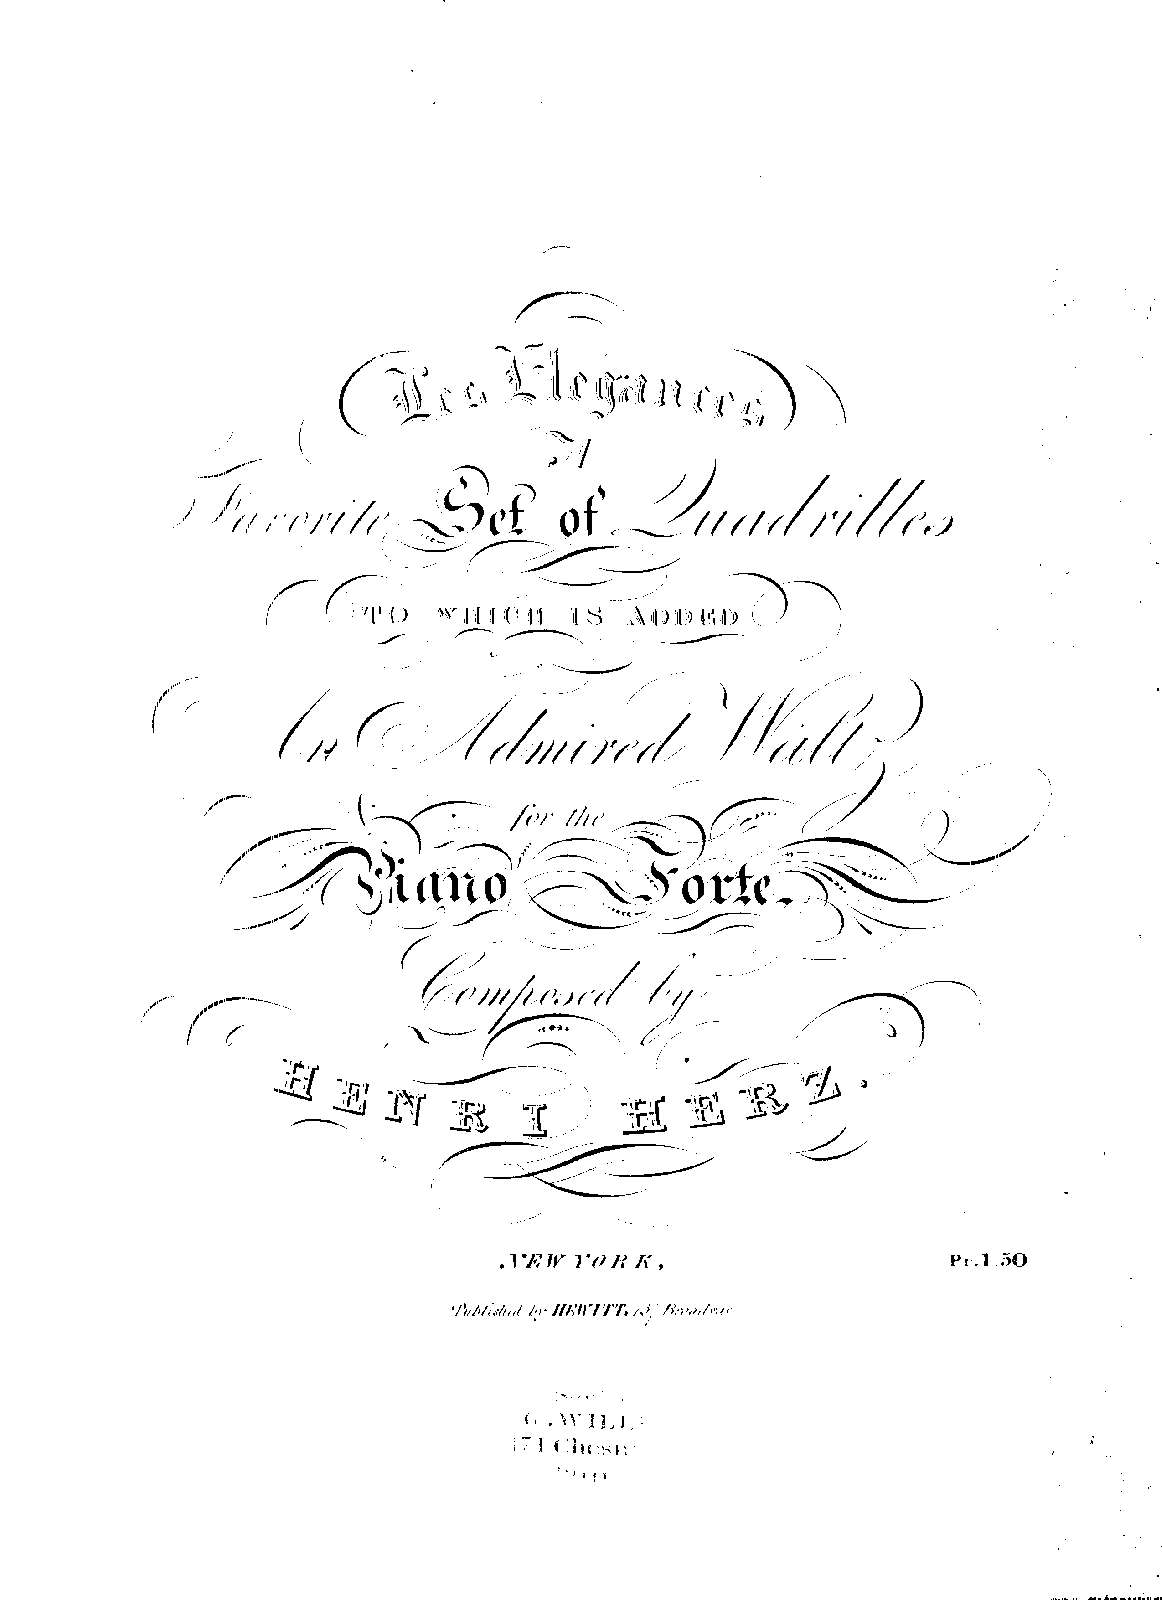 Les Elegances
A
Favorite Set of Quadrilles
TO WHICH IS ADDED
An Admired Waltz
for the
Piano Forte.
Composed by
HENRI HERZ.
NEW YORK,
Pr. 1.50
Published by HEWITT, Broadway